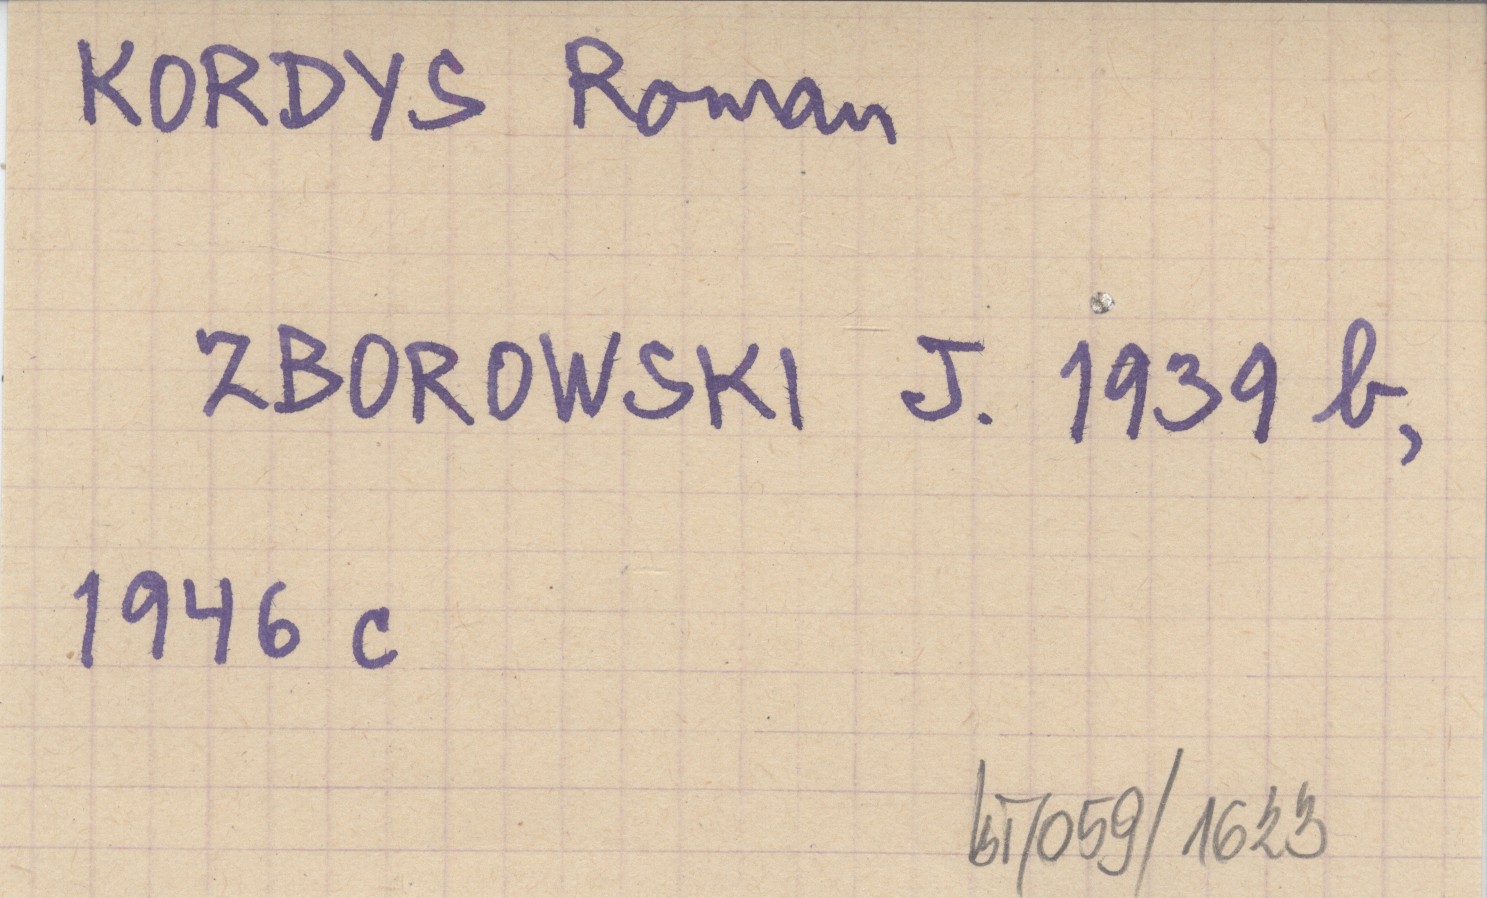 KORDYS Roman
ZBOROWSKI J. 1939 b,
1946 c
/059/1623